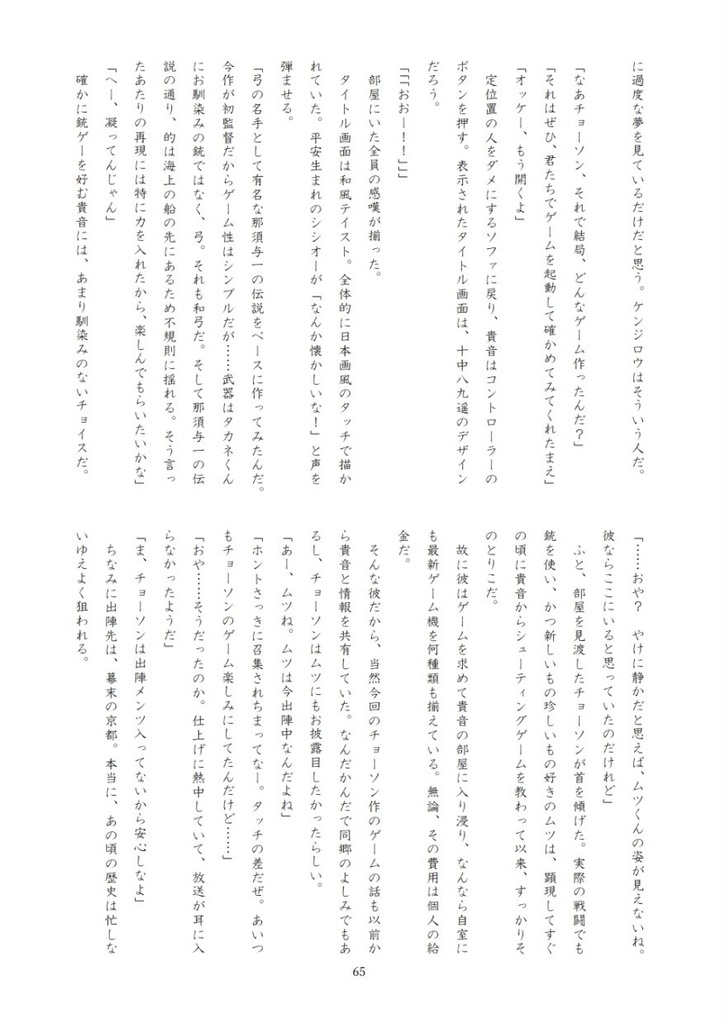 に過度な夢を見ているだけだと思う。ケンジロウはそういう人だ。
「なあチョーソン、それで結局、どんなゲーム作ったんだ？」
「それはぜひ、君たちでゲームを起動して確かめてみてくれたまえ」
「オッケー、もう開くよ」
定位置の人をダメにするソファに戻り、貴音はコントローラーの
ボタンを押す。表示されたタイトル画面は、十中八九遥のデザイン
だろう。
「「「おおー！！」」」
部屋にいた全員の感嘆が揃った。
タイトル画面は和風テイスト。全体的に日本画風のタッチで描か
れていた。平安生まれのシシオーが「なんか懐かしいな！」と声を
弾ませる。
「弓の名手として有名な那須与一の伝説をベースに作ってみたんだ。
今作が初監督だからゲーム性はシンプルだが……武器はタカネくん
にお馴染みの銃ではなく、弓。それも和弓だ。そして那須与一の伝
説の通り、的は海上の船の先にあるため不規則に揺れる。そう言っ
たあたりの再現には特に力を入れたから、楽しんでもらいたいかな」
「へー、凝ってんじゃん」
確かに銃ゲーを好む貴音には、あまり馴染みのないチョイスだ。
「……おや？　やけに静かだと思えば、ムツくんの姿が見えないね。
彼ならここにいると思っていたのだけれど」
ふと、部屋を見渡したチョーソンが首を傾げた。実際の戦闘でも
銃を使い、かつ新しいもの珍しいもの好きのムツは、顕現してすぐ
の頃に貴音からシューティングゲームを教わって以来、すっかりそ
のとりこだ。
故に彼はゲームを求めて貴音の部屋に入り浸り、なんなら自室に
も最新ゲーム機を何種類も揃えている。無論、その費用は個人の給
金だ。
そんな彼だから、当然今回のチョーソン作のゲームの話も以前か
ら貴音と情報を共有していた。なんだかんだで同郷のよしみでもあ
るし、チョーソンはムツにもお披露目したかったらしい。
「あー、ムツね。ムツは今出陣中なんだよね」
「ホントさっきに召集されちまってなー。タッチの差だぜ。あいつ
もチョーソンのゲーム楽しみにしてたんだけど……」
「おや……そうだったのか。仕上げに熱中していて、放送が耳に入
らなかったようだ」
「ま、チョーソンは出陣メンツ入ってないから安心しなよ」
ちなみに出陣先は、幕末の京都。本当に、あの頃の歴史は忙しな
いゆえよく狙われる。
65